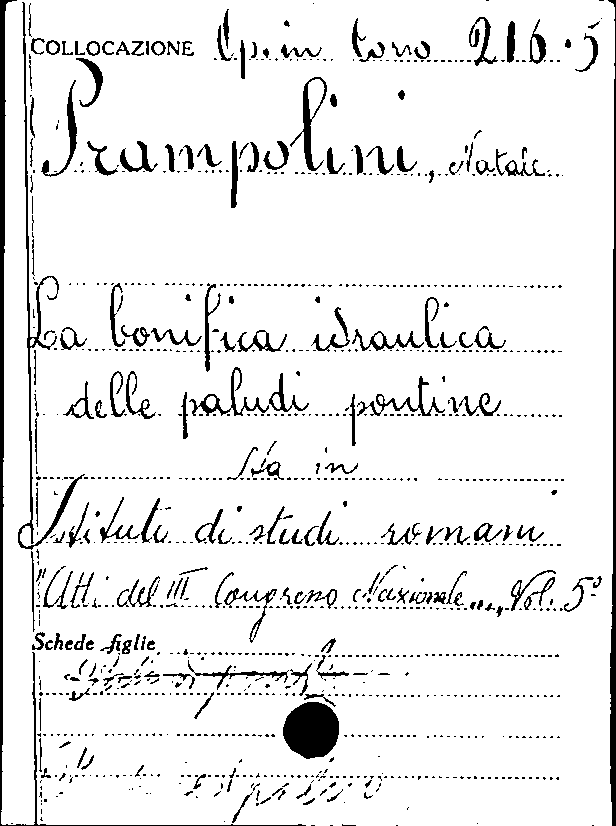 COLLOCAZIONE Op. in corso 216.5
Prampolini, Natale
La bonifica idraulica
delle paludi pontine
Sta in
Istituto di studi romani
"Atti del III Congresso Nazionale...", Vol. 5º
Schede figlie